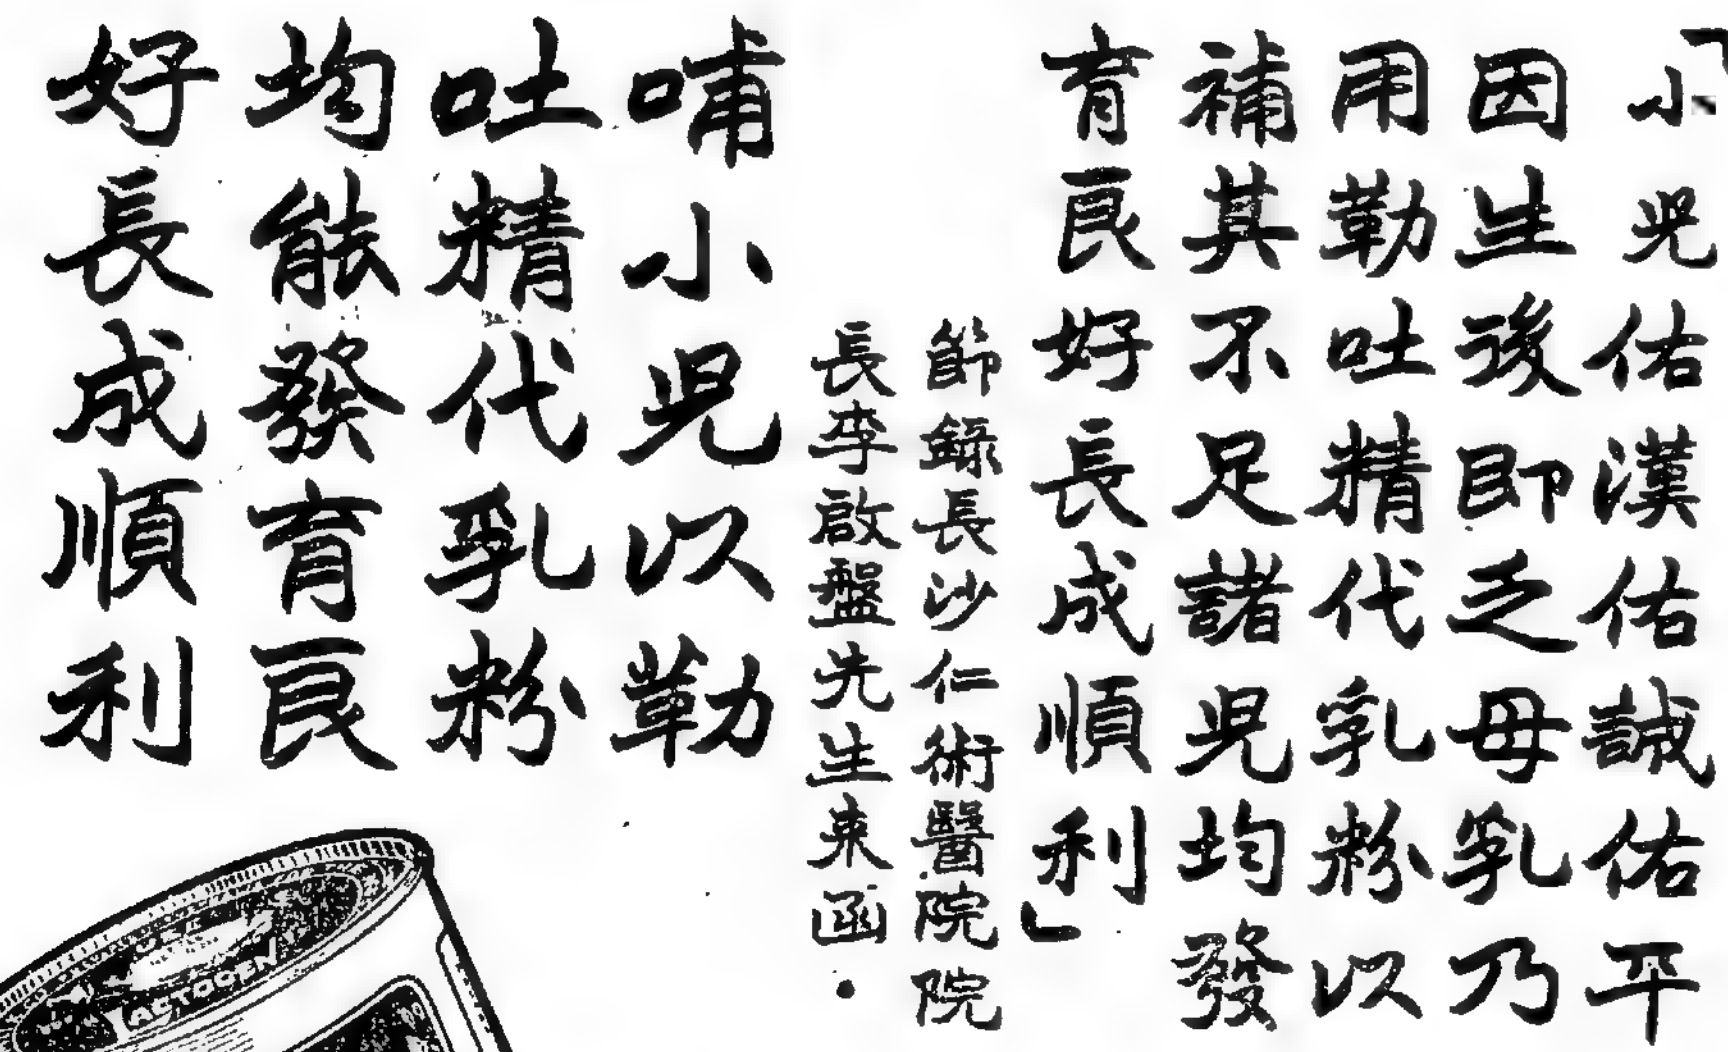 「小兒佑漢佑誠佑平
因生後即乏母乳乃
用勒吐精代乳粉以
補其不足諸兒均發
育良好長成順利」
節錄長沙仁術醫院院
長李啟盤先生來函．
哺小兒以勒
吐精代乳粉
均能發育良
好長成順利
LACTOGEN